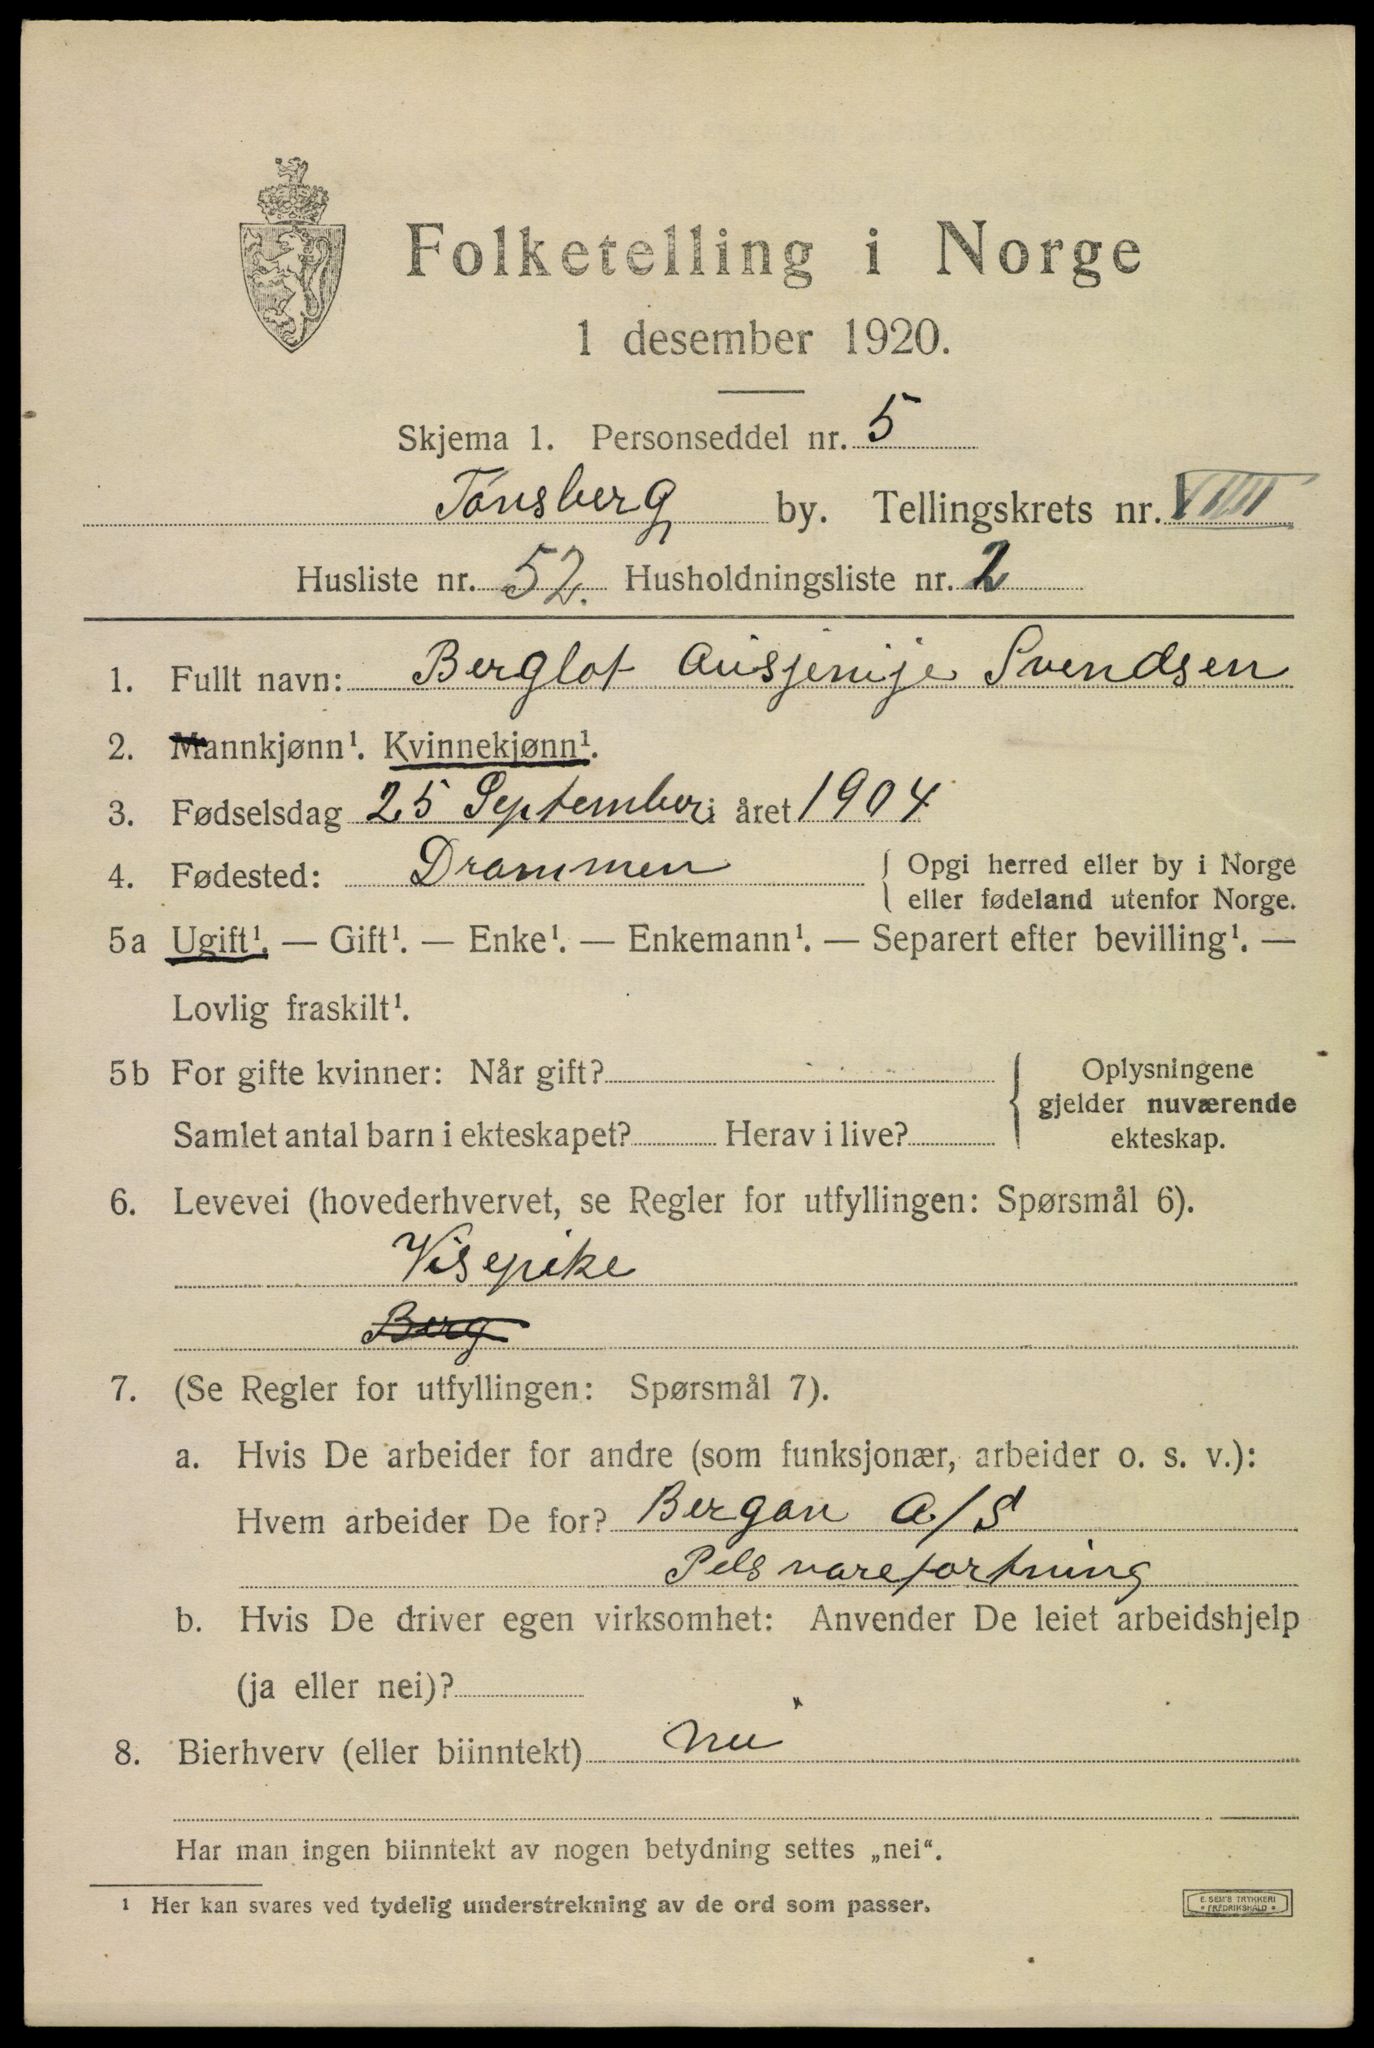 Folketelling i Norge
1 desember 1920.
Skjema 1. Personseddel nr. 5
Tønsberg by. Tellingskrets nr. VIII
Husliste nr. 52. Husholdningsliste nr. 2
1. Fullt navn: Berglot Svendsen
2. Mannkjønn¹. Kvinnekjønn¹.
3. Fødselsdag 25 September i året 1904
4. Fødested: Drammen { Opgi herred eller by i Norge
eller fødeland utenfor Norge.
5a Ugift¹. — Gift¹. — Enke¹. — Enkemann¹. — Separert efter bevilling¹. —
Lovlig fraskilt¹.
5b For gifte kvinner: Når gift? { Oplysningene
gjelder nuværende
Samlet antal barn i ekteskapet? Herav i live? ekteskap.
6. Levevei (hovederhvervet, se Regler for utfyllingen: Spørsmål 6).
Visepike
Berg
7. (Se Regler for utfyllingen: Spørsmål 7).
a. Hvis De arbeider for andre (som funksjonær, arbeider o. s. v.):
Hvem arbeider De for? Bergan A/S
Pelsvarefortning
b. Hvis De driver egen virksomhet: Anvender De leiet arbeidshjelp
(ja eller nei)?
8. Bierhverv (eller biinntekt) nei
Har man ingen biinntekt av nogen betydning settes „nei“.
¹ Her kan svares ved tydelig understrekning av de ord som passer.
E. SEM'S TRYKKERI
* FREDRIKSHALD *